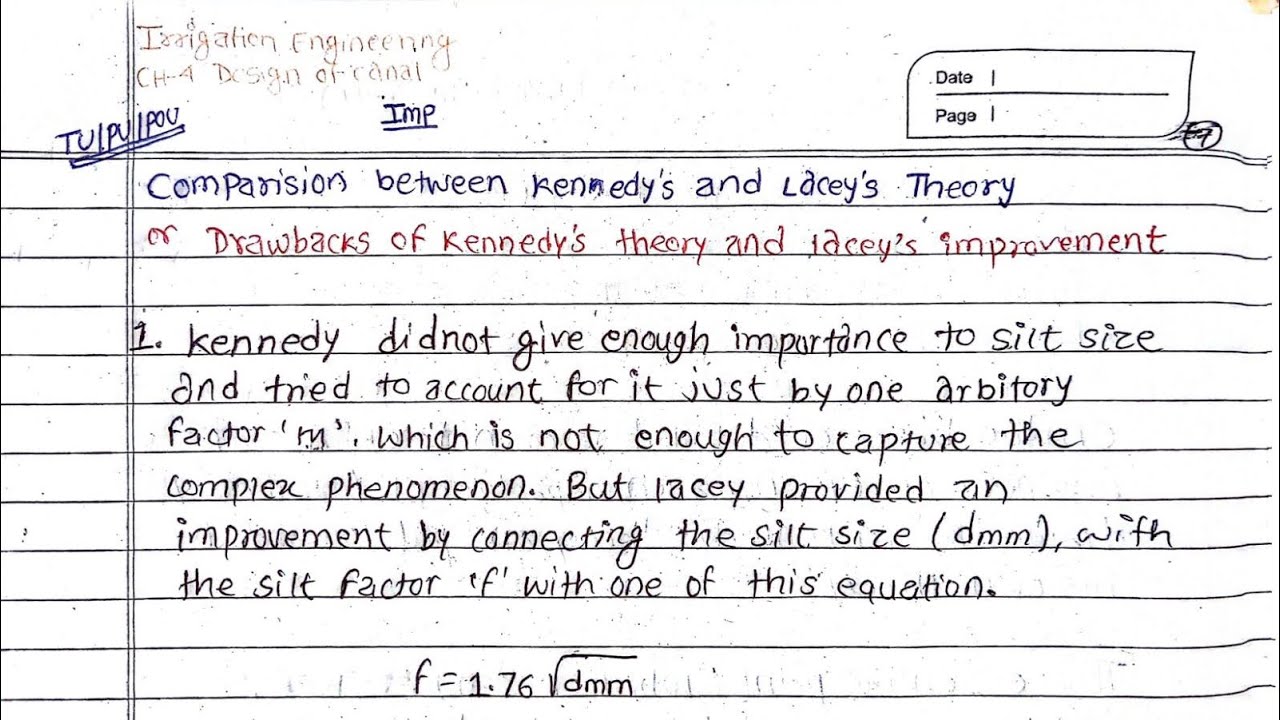 Irrigation Engineering
CH-4 Design of canal
TU/PU/POU
Imp
Date
Page
Comparision between Kennedy's and Lacey's Theory
or Drawbacks of Kennedy's theory and lacey's improvement
1. Kennedy didnot give enough importance to silt size
and tried to account for it just by one arbitory
factor 'm'. which is not enough to capture the
complex phenomenon. But lacey provided an
improvement by connecting the silt size (dmm), with
the silt factor 'f' with one of this equation.
f = 1.76 √dmm